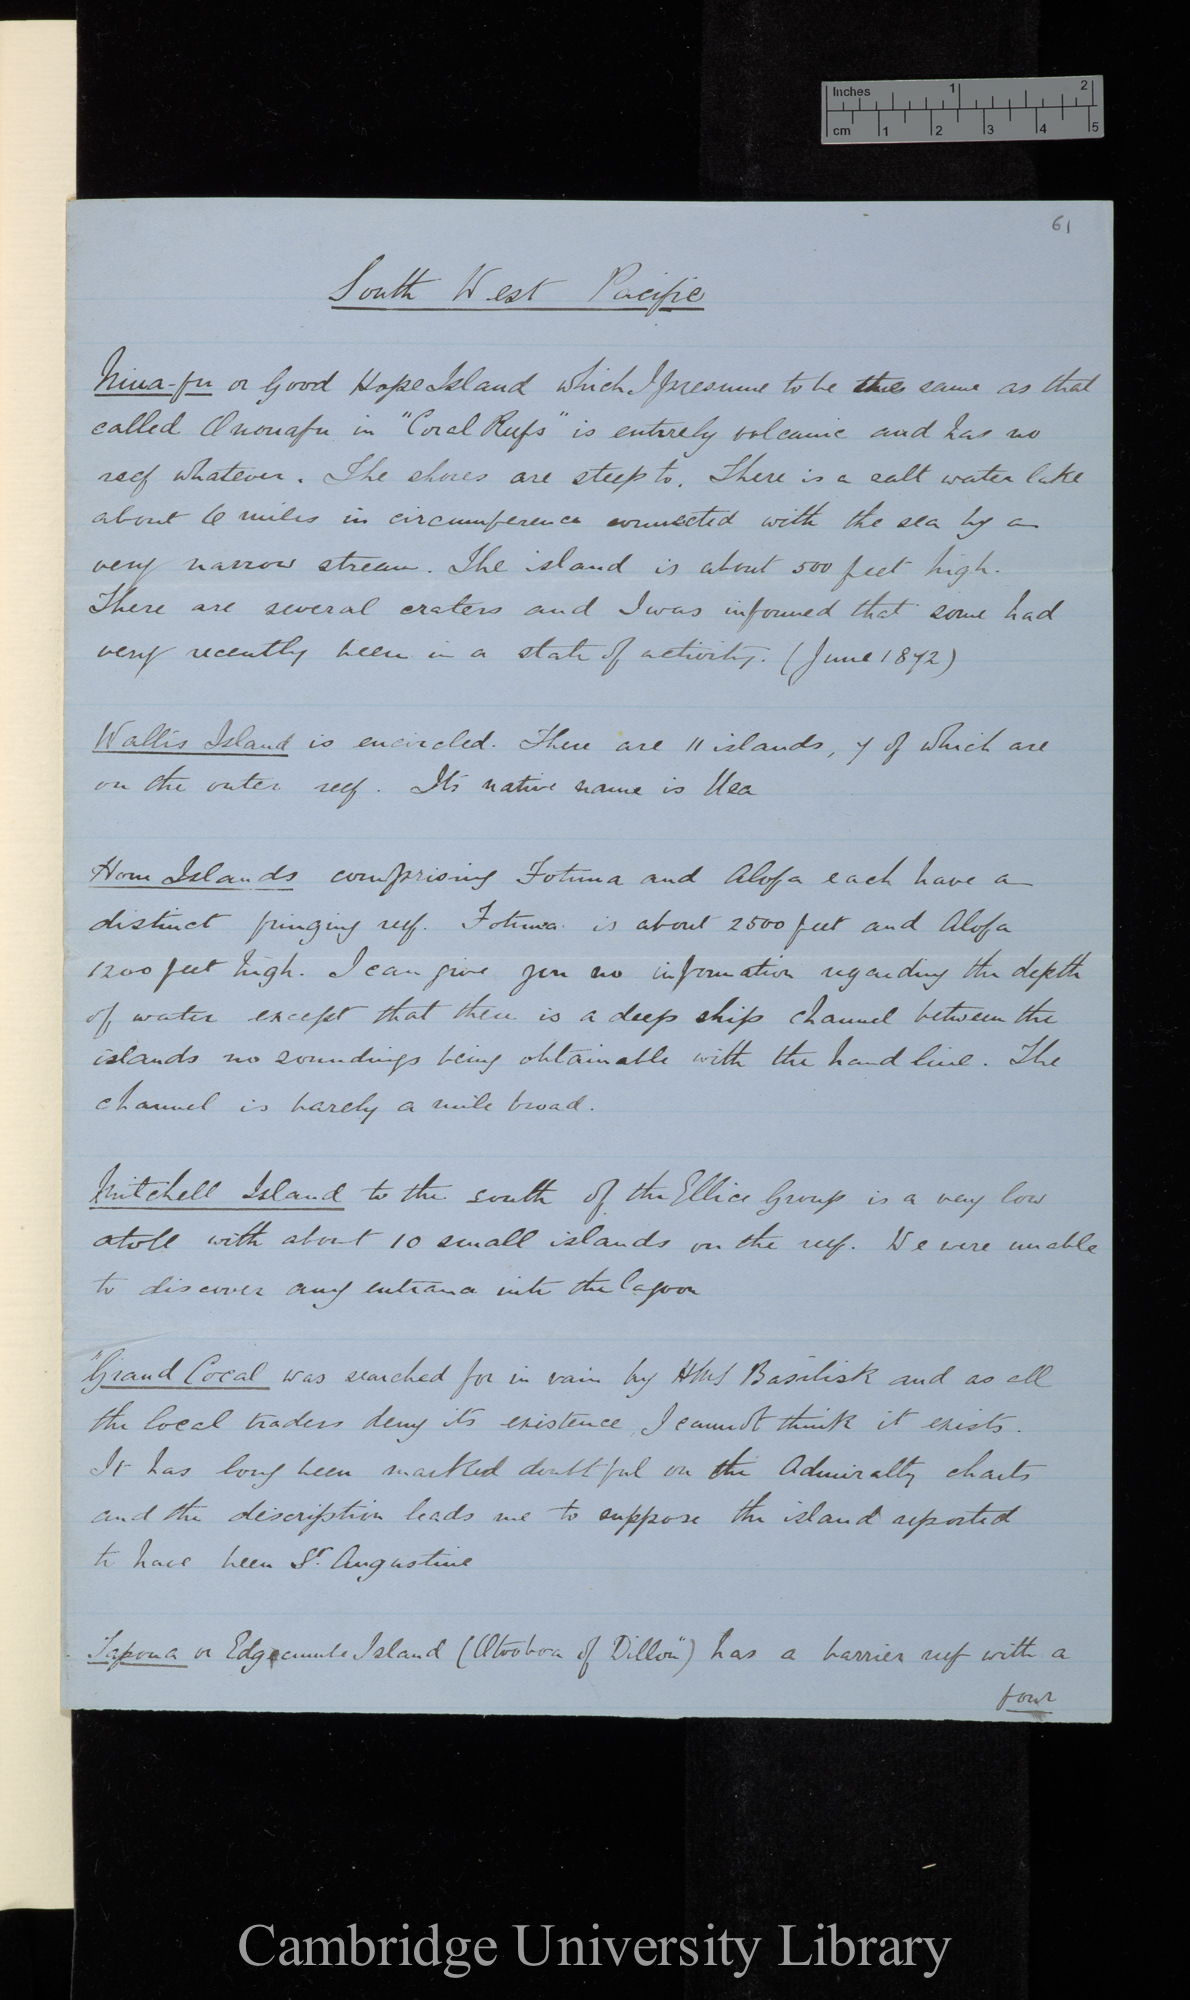 Inches 1 2
cm 1 2 3 4 5
61
South West Pacific
Niua-fu or Good Hope Island which I presume to be the same as that
called Onouafu in "Coral Reefs" is entirely volcanic and has no
reef whatever. The shores are steep to. There is a salt water lake
about 6 miles in circumference connected with the sea by a
very narrow stream. The island is about 500 feet high.
There are several craters and I was informed that some had
very recently been in a state of activity. (June 1872)
Wallis Island is encircled. There are 11 islands, 7 of which are
on the outer reef. Its native name is Uea
Horn Islands comprising Fotuna and Alofa each have a
distinct fringing reef. Fotuna is about 2500 feet and Alofa
1200 feet high. I can give you no information regarding the depth
of water except that there is a deep ship channel between the
islands no soundings being obtainable with the hand line. The
channel is barely a mile broad.
Mitchell Island to the south of the Ellice Group is a very low
atoll with about 10 small islands on the reef. We were unable
to discover any entrance into the lagoon
"Grand Cocal was searched for in vain by HMS Basilisk and as all
the local traders deny its existence, I cannot think it exists.
It has long been marked doubtful on the Admiralty charts
and the discription leads me to suppose the island reported
to have been St. Augustine
Tapoua or Edgecumbe Island (Otooboa of Dillon") has a barrier reef with a
four
Cambridge University Library